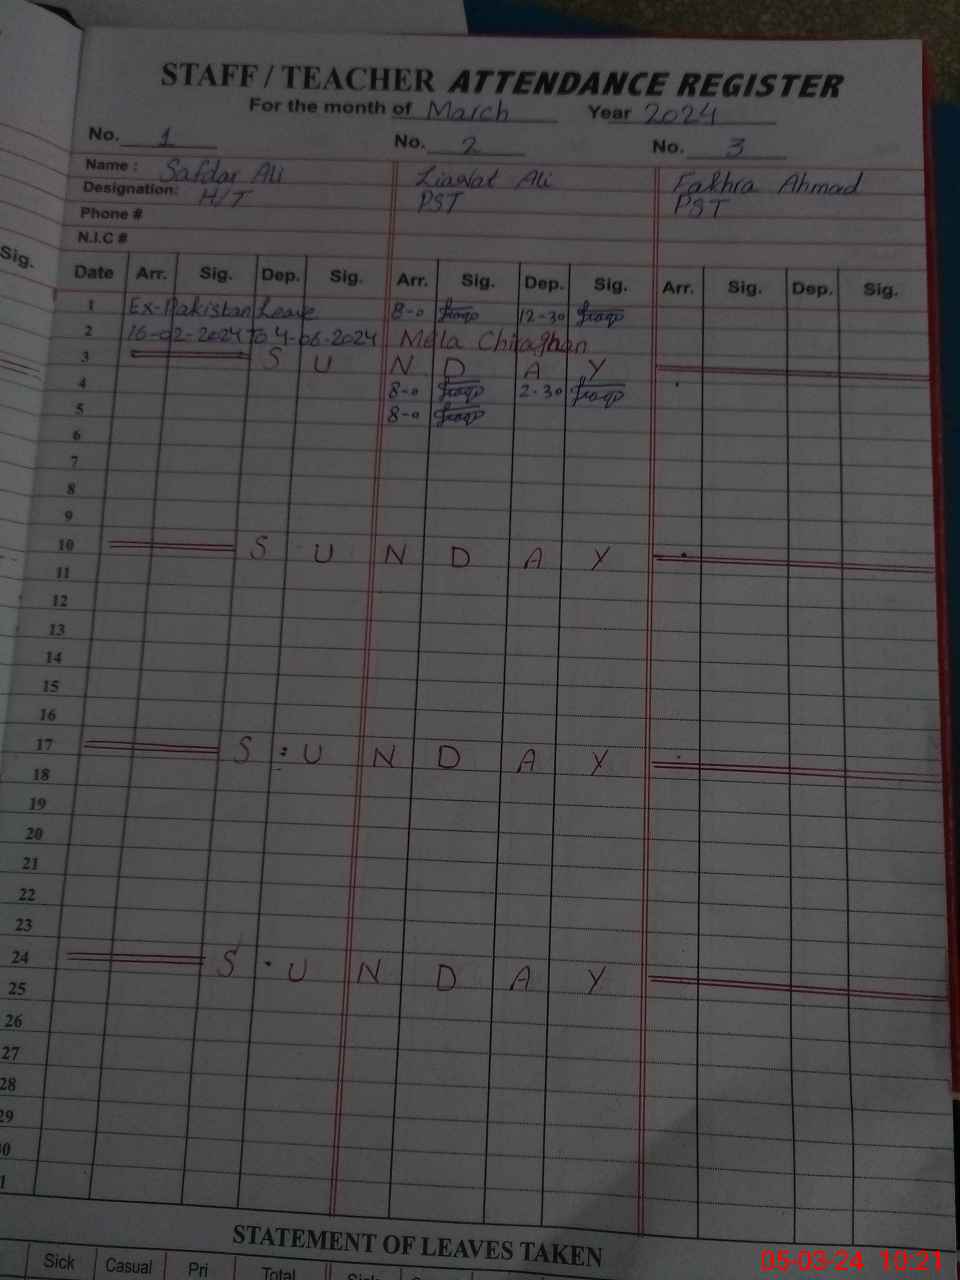 STAFF / TEACHER ATTENDANCE REGISTER
For the month of March Year 2024
No. 1 No. 2 No. 3
Name : Safdar Ali Liaqat Ali Fakhra Ahmad
Designation: H/T PST PST
Phone #
N.I.C #
Sig.
Date Arr. Sig. Dep. Sig. Arr. Sig. Dep. Sig. Arr. Sig. Dep. Sig.
1 Ex-Pakistan Leave 8-0 12-30
2 16-02-2024 To 4-06-2024 Mela Chiraghan
3 S U N D A Y
4 8-0 2-30
5 8-0
6
7
8
9
10 S U N D A Y
11
12
13
14
15
16
17 S U N D A Y
18
19
20
21
22
23
24 S U N D A Y
25
26
27
28
29
0
1
STATEMENT OF LEAVES TAKEN
Sick Casual Pri Total Sick
05-03-24 10:21